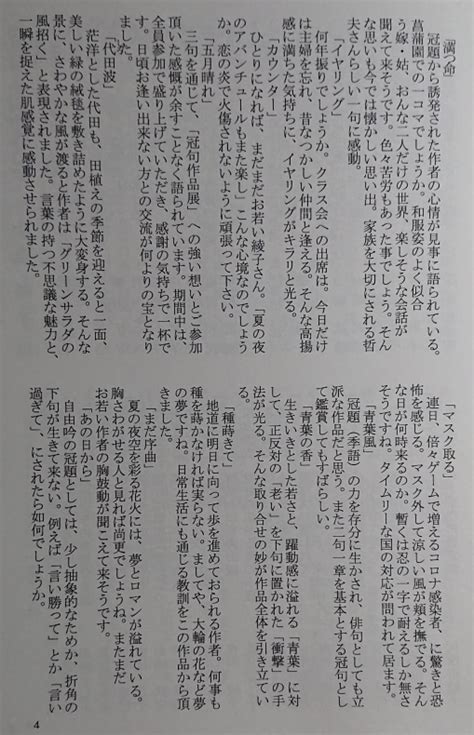 「満つ命」
冠題から誘発された作者の心情が見事に語られている。
菖蒲園での一コマでしょうか。和服姿のよく似合
う嫁・姑、おんな二人だけの世界、楽しそうな会話が
聞えて来そうです。色々苦労もあった事でしょう。そん
な思いも今では懐かしい思い出。家族を大切にされる哲
夫さんらしい一句に感動。
「イヤリング」
何年振りでしょうか。クラス会への出席は。今日だけ
は主婦を忘れ、昔なつかしい仲間と逢える。そんな高揚
感に満ちた気持ちに、イヤリングがキラリと光る。
「カウンター」
ひとりになれば、まだまだお若い綾子さん。「夏の夜
のアバンチュールもまた楽し」こんな心境なのでしょう
か。恋の炎で火傷されないように頑張って下さい。
「五月晴れ」
三句を通じて、「冠句作品展」への強い想いとご参加
頂いた感慨が余すことなく語られています。期間中は、
全員参加で盛り上げていただき、感謝の気持ちで一杯で
す。日頃お逢い出来ない方との交流が何よりの宝となり
ました。
「代田波」
茫洋とした代田も、田植えの季節を迎えると一面、
美しい緑の絨毯を敷き詰めたように大変身する。そんな
景に、さわやかな風が渡ると作者は「グリーンサラダの
風招く」と表現されました。言葉の持つ不思議な魅力と、
一瞬を捉えた肌感覚に感動させられました。
「マスク取る」
連日、倍々ゲームで増えるコロナ感染者、に驚きと恐
怖を感じる。マスク外して涼しい風が頬を撫でる。そん
な日が何時来るのか。暫くは忍の一字で耐えるしか無さ
そうですね。タイムリーな国の対応が問われて居ます。
「青葉風」
冠題（季語）の力を存分に生かされ、俳句としても立
派な作品だと思う。また一句一章を基本とする冠句とし
て鑑賞してもすばらしい。
「青葉の香」
生きいきとした若さと、躍動感に溢れる「青葉」に対
して、正反対の「老い」を下句に置かれた「衝撃」の手
法が光る。そんな取り合せの妙が作品全体を引き立てい
る。
「種蒔きて」
地道に明日に向って歩を進めておられる作者。何事も
種を蒔かなければ実らない。ましてや、大輪の花など夢
の夢ですね。日常生活にも通じる教訓をこの作品から頂
きました。
「まだ序曲」
夏の夜空を彩る花火には、夢とロマンが溢れている。
胸さわがせる人と見れば尚更でしょうね。まだまだ
お若い作者の胸鼓動が聞こえて来そうです。
「あの日から」
自由吟の冠題としては、少し抽象的なためか、折角の
下句が生きて来ない。例えば「言い勝って」とか「言い
過ぎて」、にされたら如何でしょうか。
4